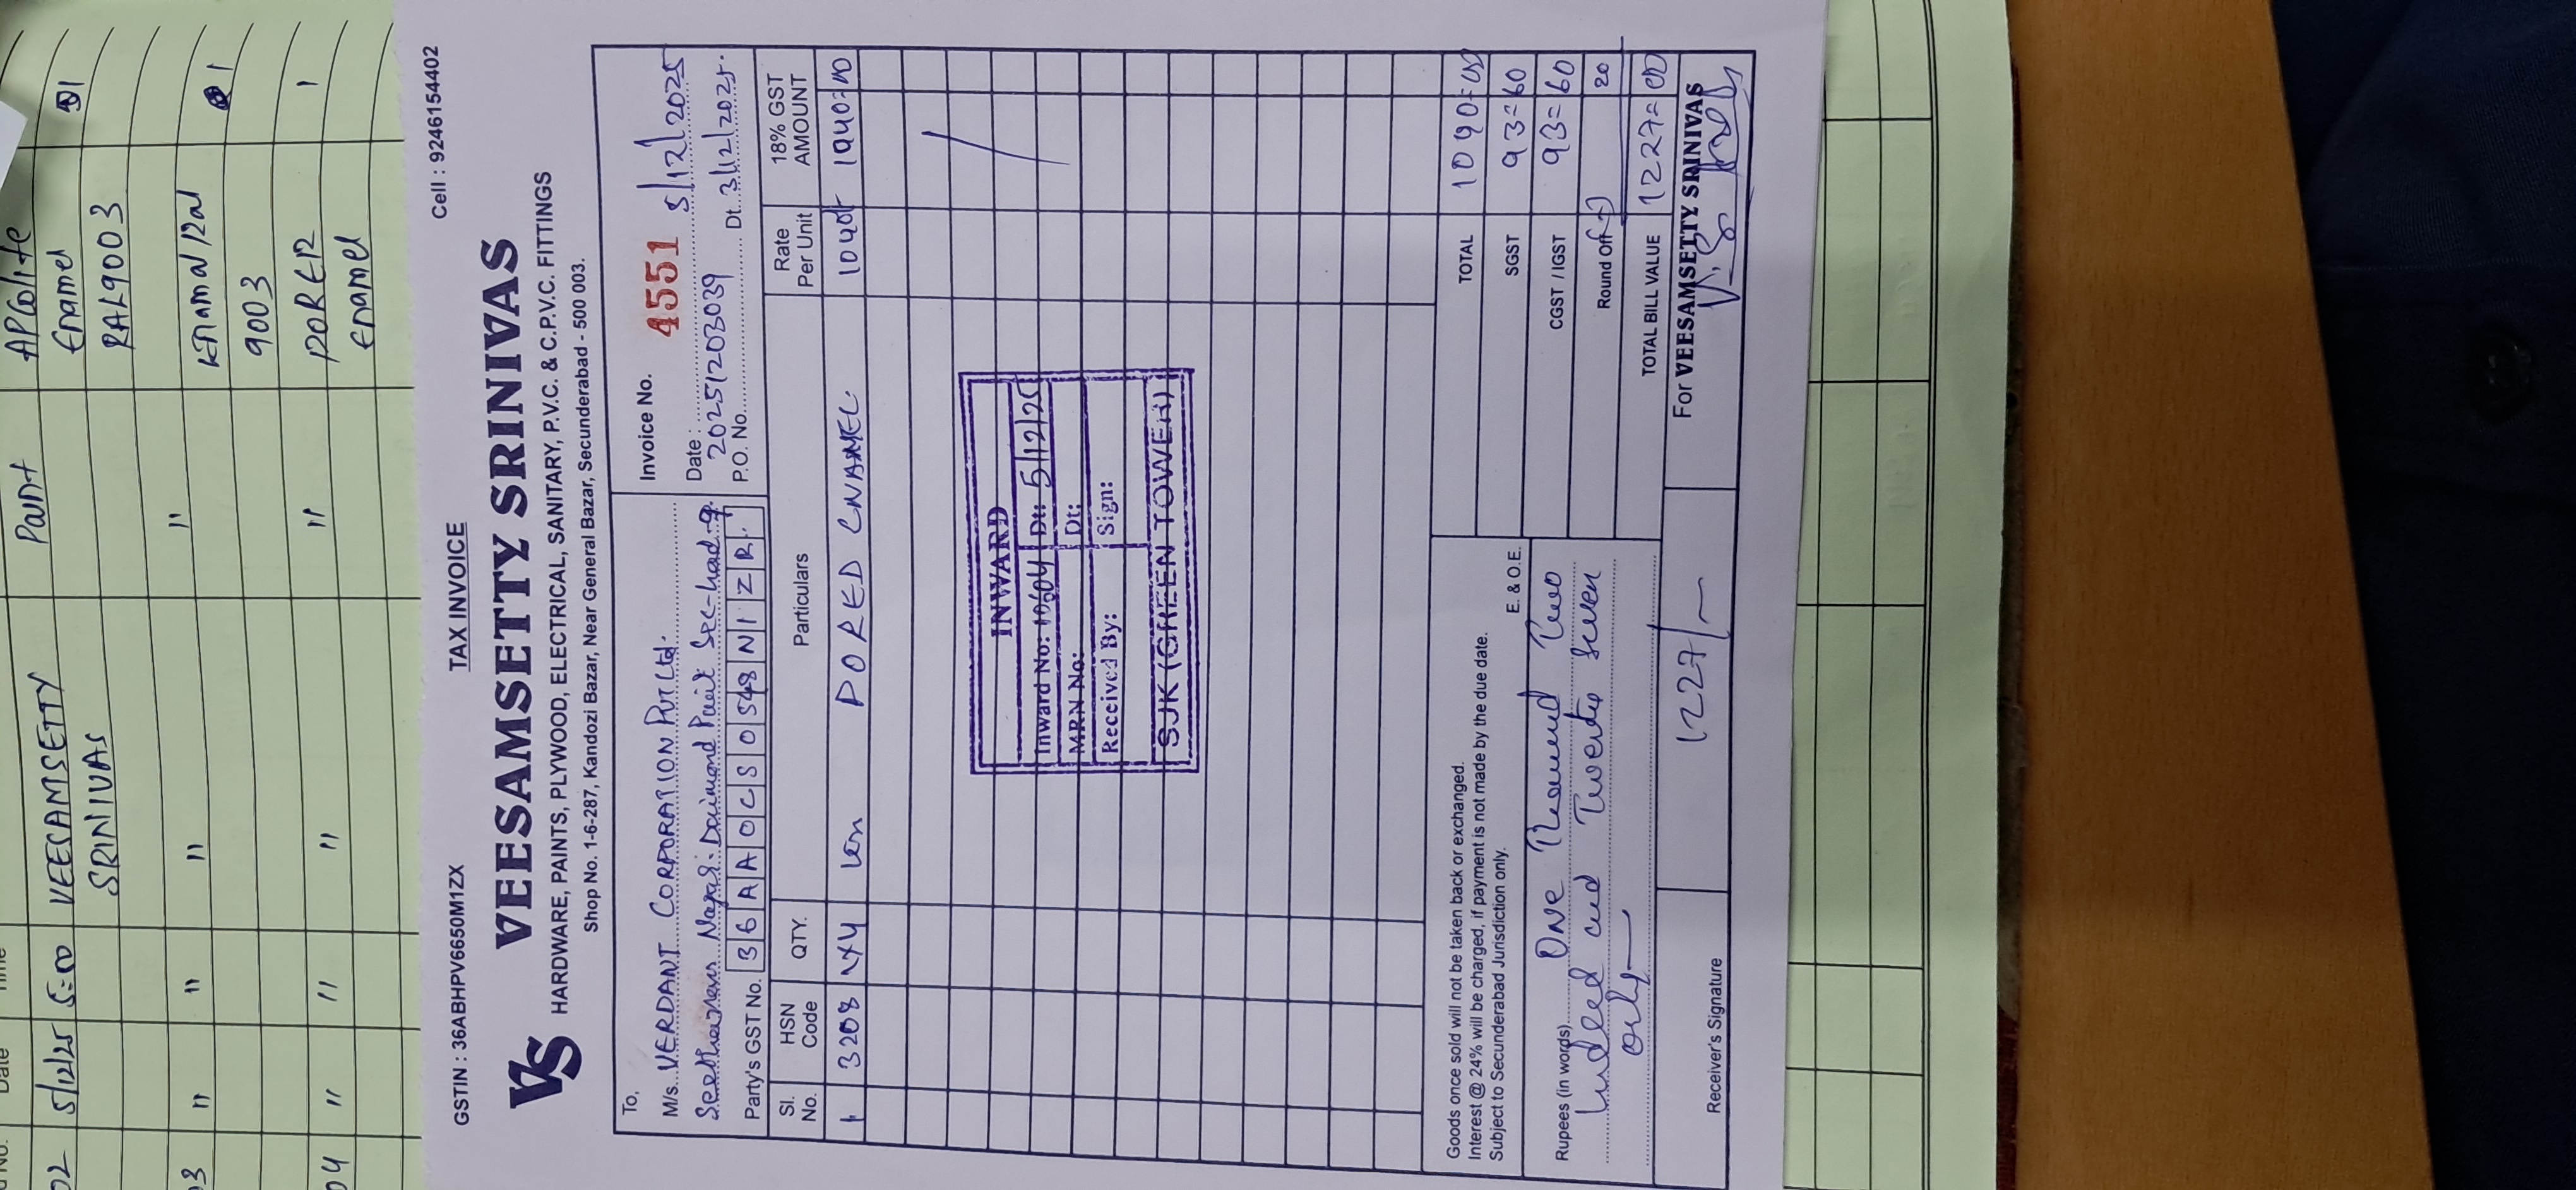 APColite
Paint Enamel 1
RAL9003
02 5/12/25 5:00 VEECAMSETTY
SRINIVAS
03 " " " " Enamal Ral 1
9003
04 " " " " PORED 1
Enamel
GSTIN : 36ABHPV6650M1ZX TAX INVOICE Cell : 9246154402
VS VEESAMSETTY SRINIVAS
HARDWARE, PAINTS, PLYWOOD, ELECTRICAL, SANITARY, P.V.C. & C.P.V.C. FITTINGS
Shop No. 1-6-287, Kandozi Bazar, Near General Bazar, Secunderabad - 500 003.
To,
M/s. VERDANT CORPORATION Pvt Ltd.
Invoice No. 4551
Date: 5/12/2025
20251203039
P.O. No. Dt. 3/12/2025.
Party's GST No. 36AAOCS0548N1ZR
Sl. No. HSN Code QTY. Particulars Rate Per Unit 18% GST AMOUNT
1 3208 PORED ENAMEL
INWARD
Inward No: Dt: 5/12/25
MRN No: Dt:
Received By: Sign:
SJK (GREEN TOWER)
Goods once sold will not be taken back or exchanged.
Interest @ 24% will be charged, if payment is not made by the due date.
Subject to Secunderabad Jurisdiction only. E. & O.E.
TOTAL
SGST 93=60
CGST / IGST 93=60
Round Off (-) 20
TOTAL BILL VALUE 1227=00
Rupees (in words) One Thousand Two
Hundred and Twenty Seven
only
1227/-
Receiver's Signature
For VEESAMSETTY SRINIVAS